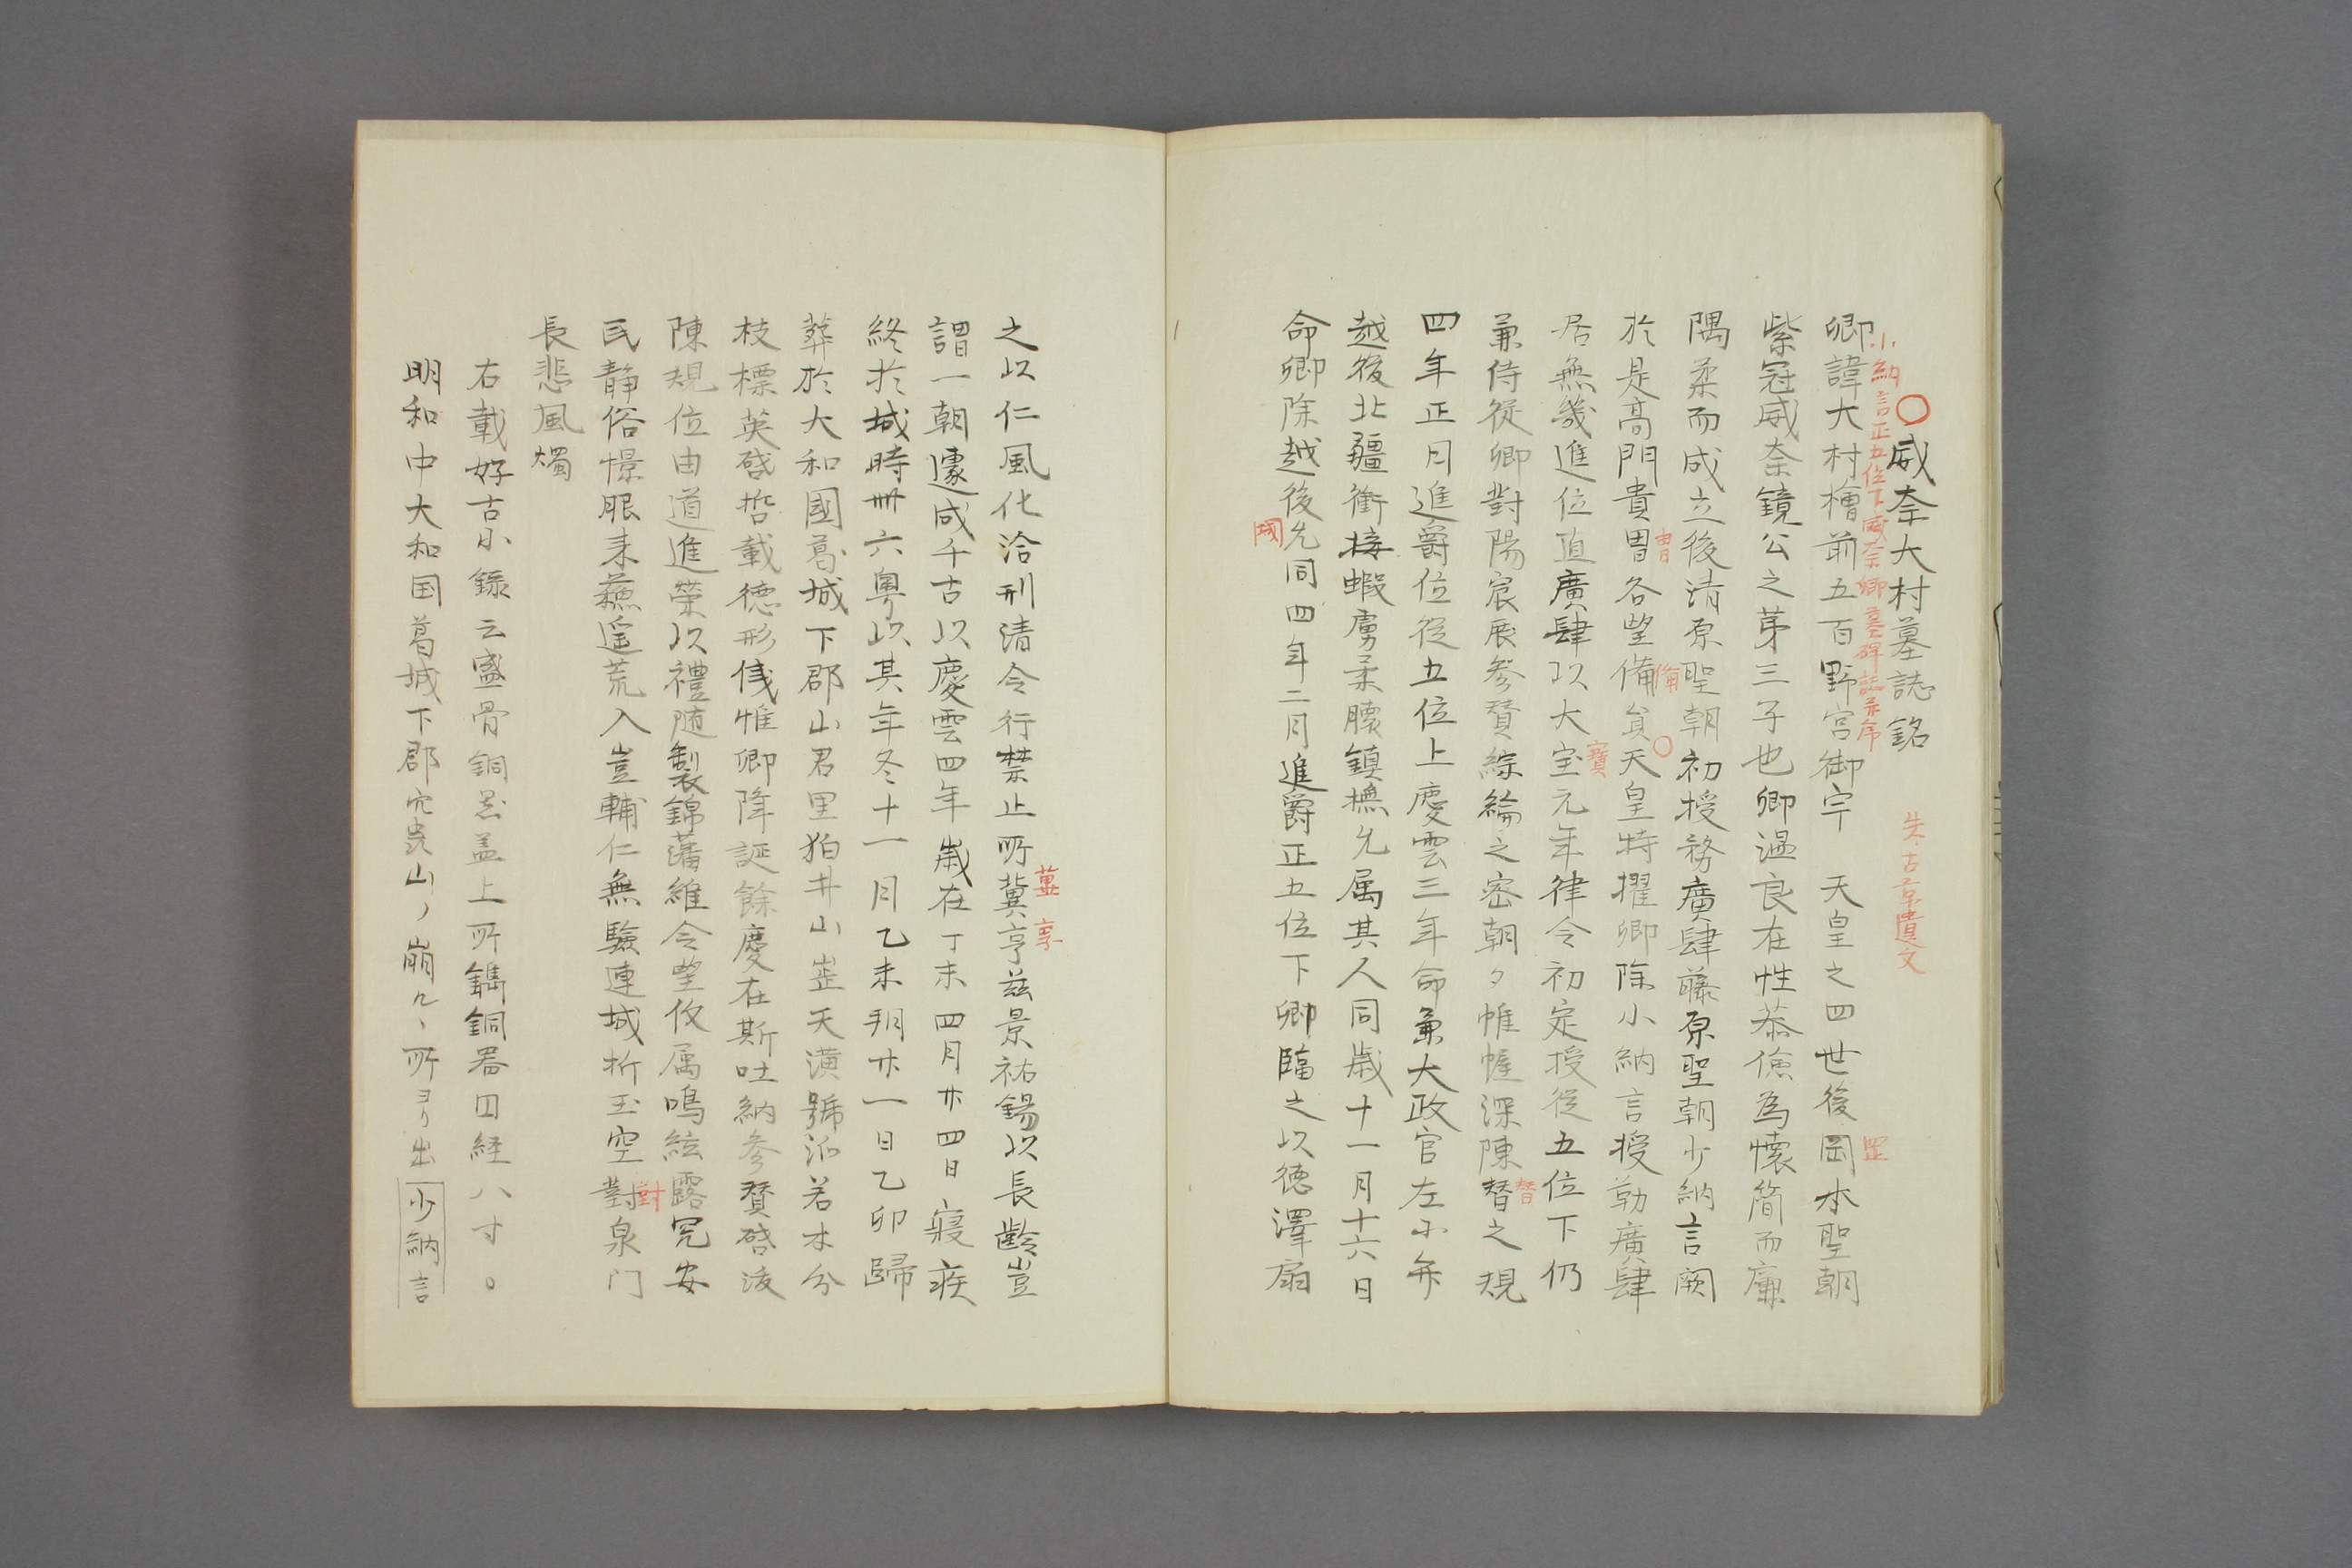 ○威奈大村墓誌銘 朱古京遺文
小納言正五位下威奈卿墓碑誌并序
卿諱大村檜前五百野宮御宇 天皇之四世後岡本聖朝
紫冠威奈鏡公之第三子也卿温良在性恭儉為懷簡而廉
隅柔而成立後清原聖朝初授務廣肆藤原聖朝少納言闕
於是高門貴冑各望備員天皇特擢卿除小納言授勤廣肆
居無幾進位直廣肆以大宝元年律令初定授従五位下仍
寶
兼侍従卿對陽宸扆参賛綜綸之密朝夕帷幄深陳替之規
四年正月進爵位従五位上慶雲三年命兼大政官左小弁
越後北疆衝接蝦虜柔懐鎮撫允属其人同歳十一月十六日
命卿除越後允同四年二月進爵正五位下卿臨之以徳澤扇
城
之以仁風化洽刑清令行禁止所冀亨茲景祐錫以長齢豈
享
謂一朝遽成千古以慶雲四年歳在丁未四月廿四日寢疾
終於城時卌六粤以其年冬十一月乙未朔廿一日乙卯歸
葬於大和國葛城下郡山君里狛井山崗天潢號泒若木分
枝標英啓哲載徳形儀惟卿降誕餘慶在斯吐納参賛啓沃
陳規位由道進榮以禮随製錦蕃維令望攸属鳴絃露冕安
民静俗憬服来蘇遥荒入豈輔仁無驗連城折玉空對泉门
對
長悲風燭
右載好古小録云盛骨銅器盖上所鐫銅器囗経八寸。
明和中大和国葛城下郡穴虫山ノ崩レヽ所ヨリ出少納言